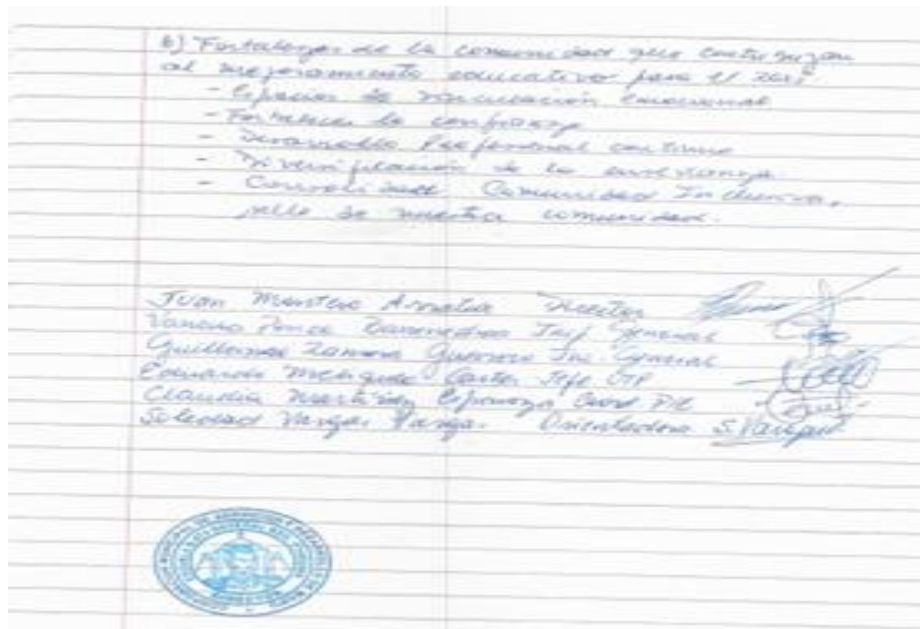 b) Fortalezas de la comunidad que contribuyan
al mejoramiento educativo para el
- Espacios de vinculación emocional
- Fortalecer la confianza
- Desarrollo Profesional continuo
- Diversificación de la enseñanza.
- Comunidad Inclusiva,
sello de nuestra comunidad.
Juan Director
Ponce General
Guillermo Zamora Guerrero General
Eduardo Jefe UTP
Claudia Martínez Espinoza Coord PIE
Soledad Vargas Vargas. Orientadora S. Vargas